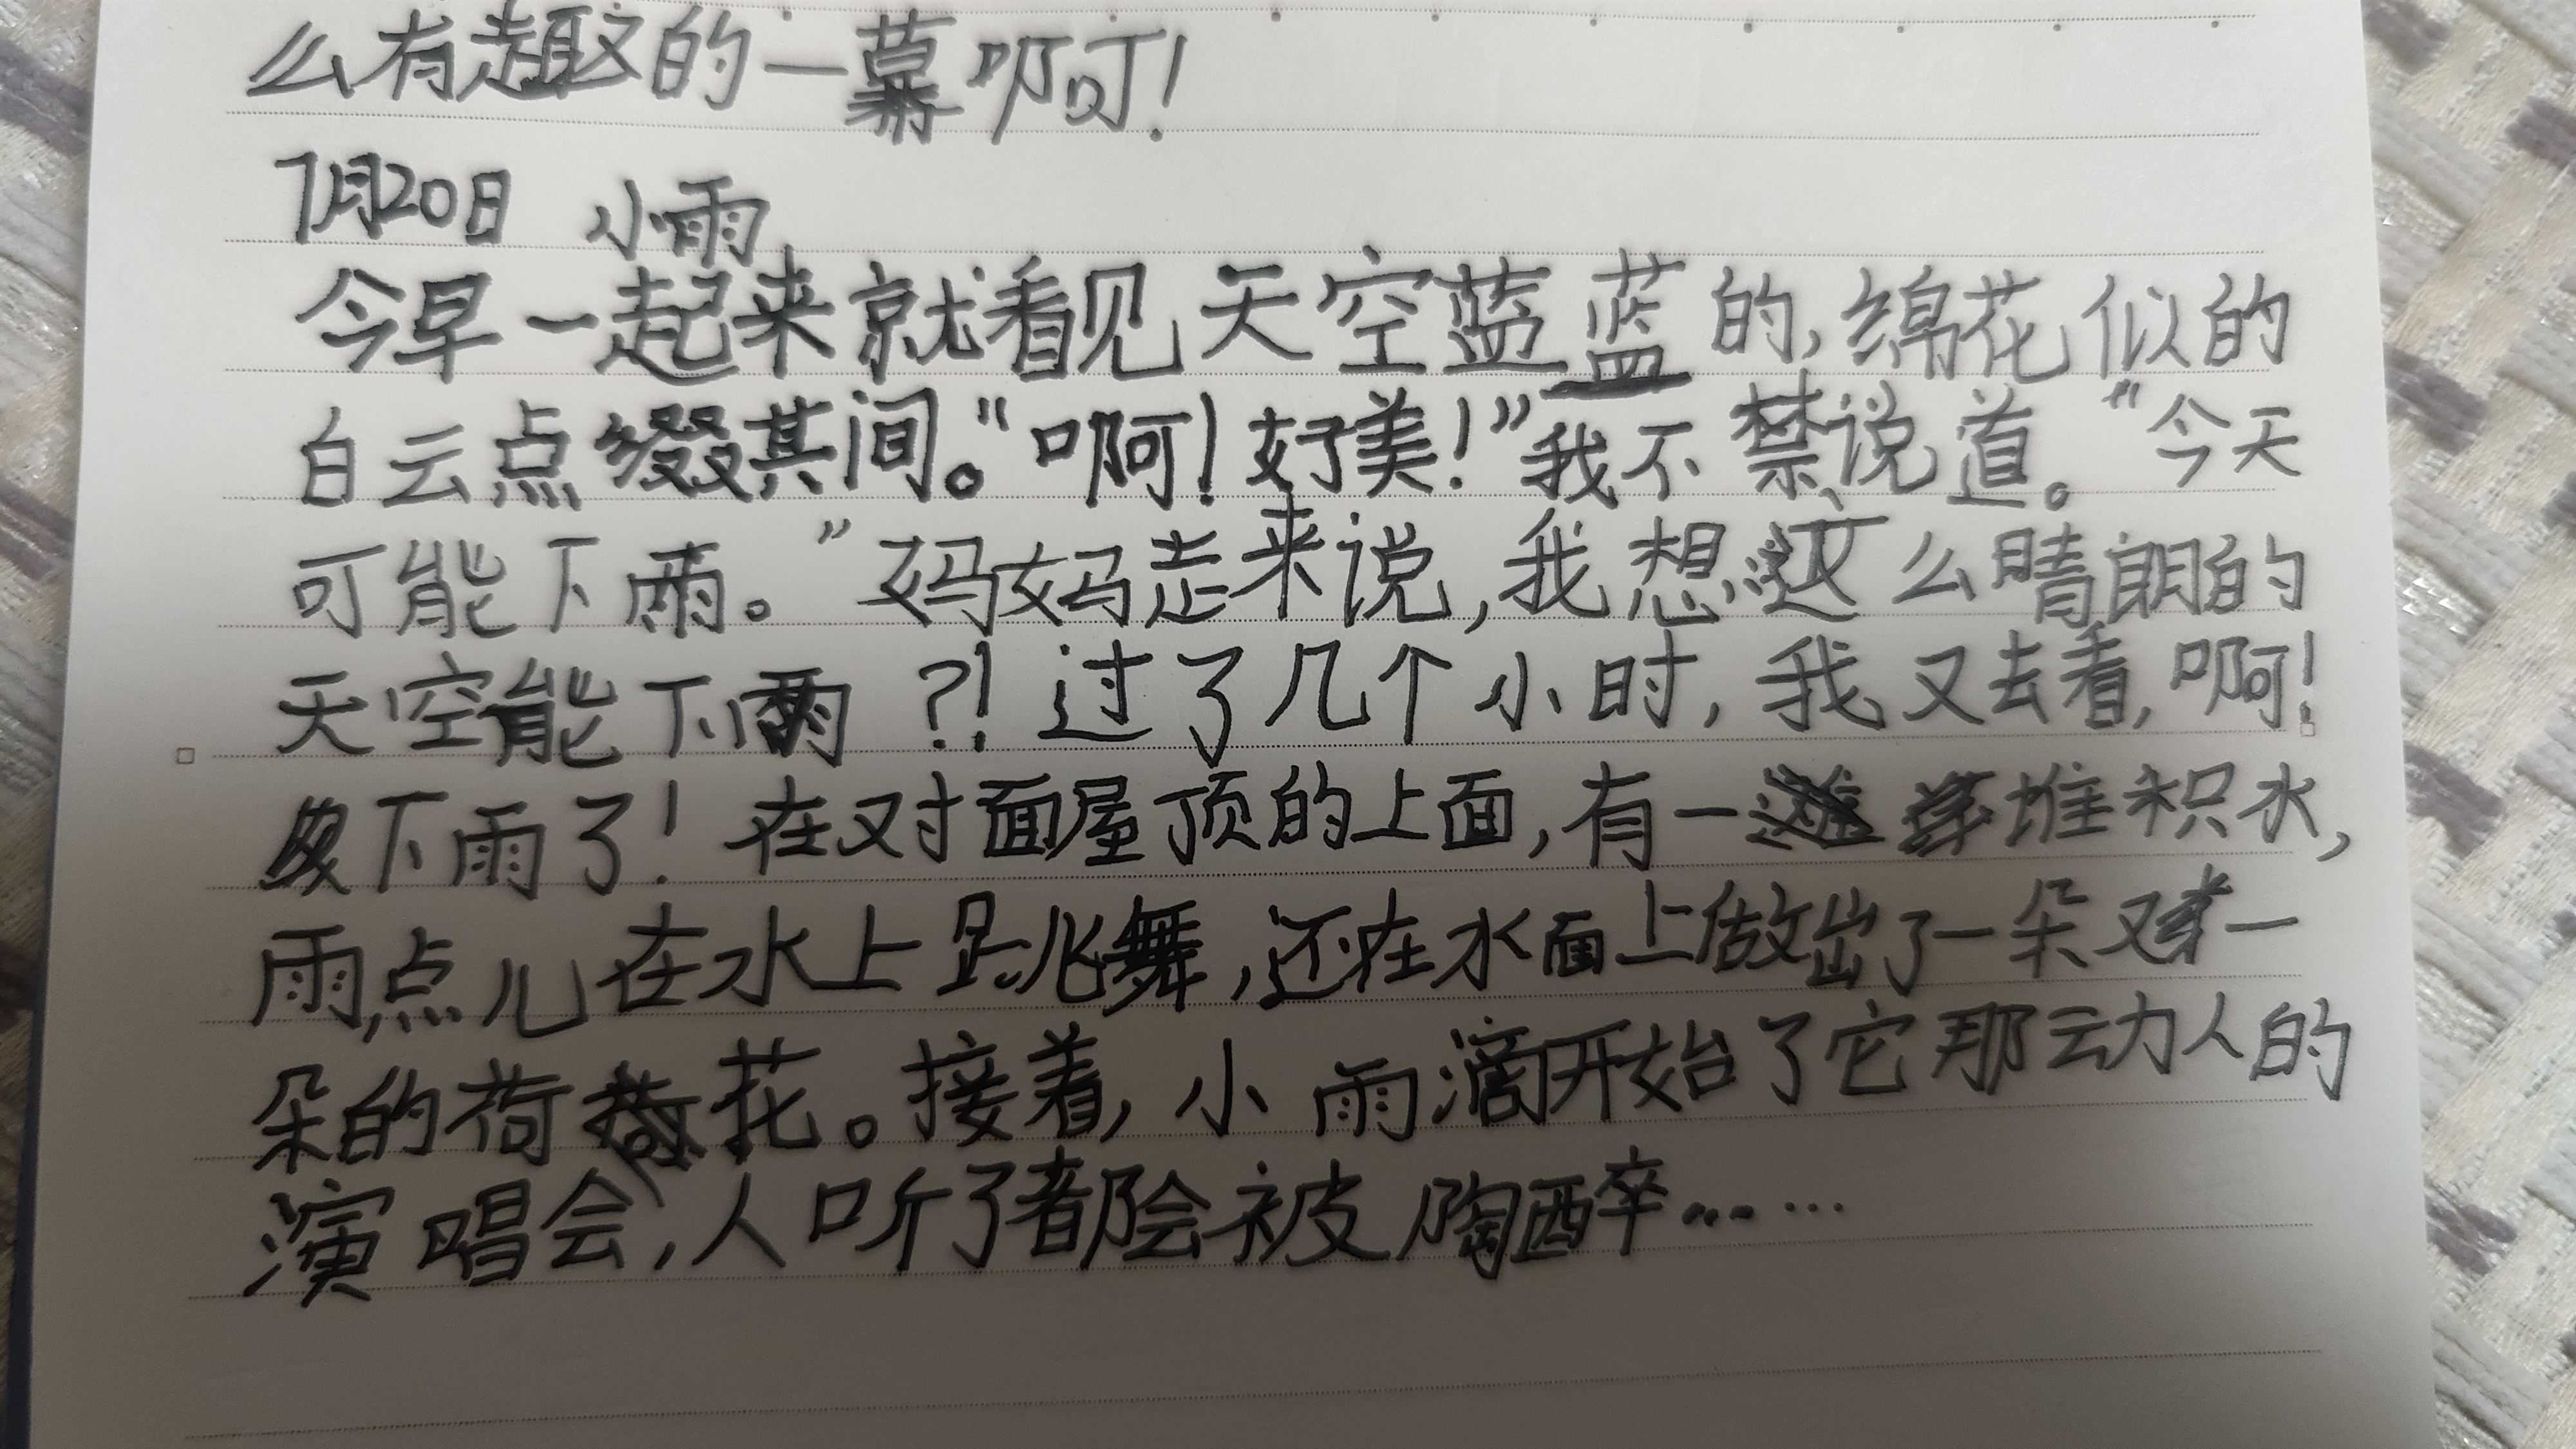 么有趣的一幕啊!
7月20日 小雨
今早一起来就看见天空蓝蓝的,绵花似的
白云点缀其间。“啊!好美!”我不禁说道。“今天
可能下雨。”妈妈走来说,我想这么晴朗的
天空能下雨?!过了几个小时,我又去看,啊!
下雨了!在对面屋顶的上面,有一堆积水,
雨点儿在水上跳舞,还在水面上做出了一朵又一
朵的荷花。接着,小雨滴开始了它那动人的
演唱会,人听了都会被陶醉……